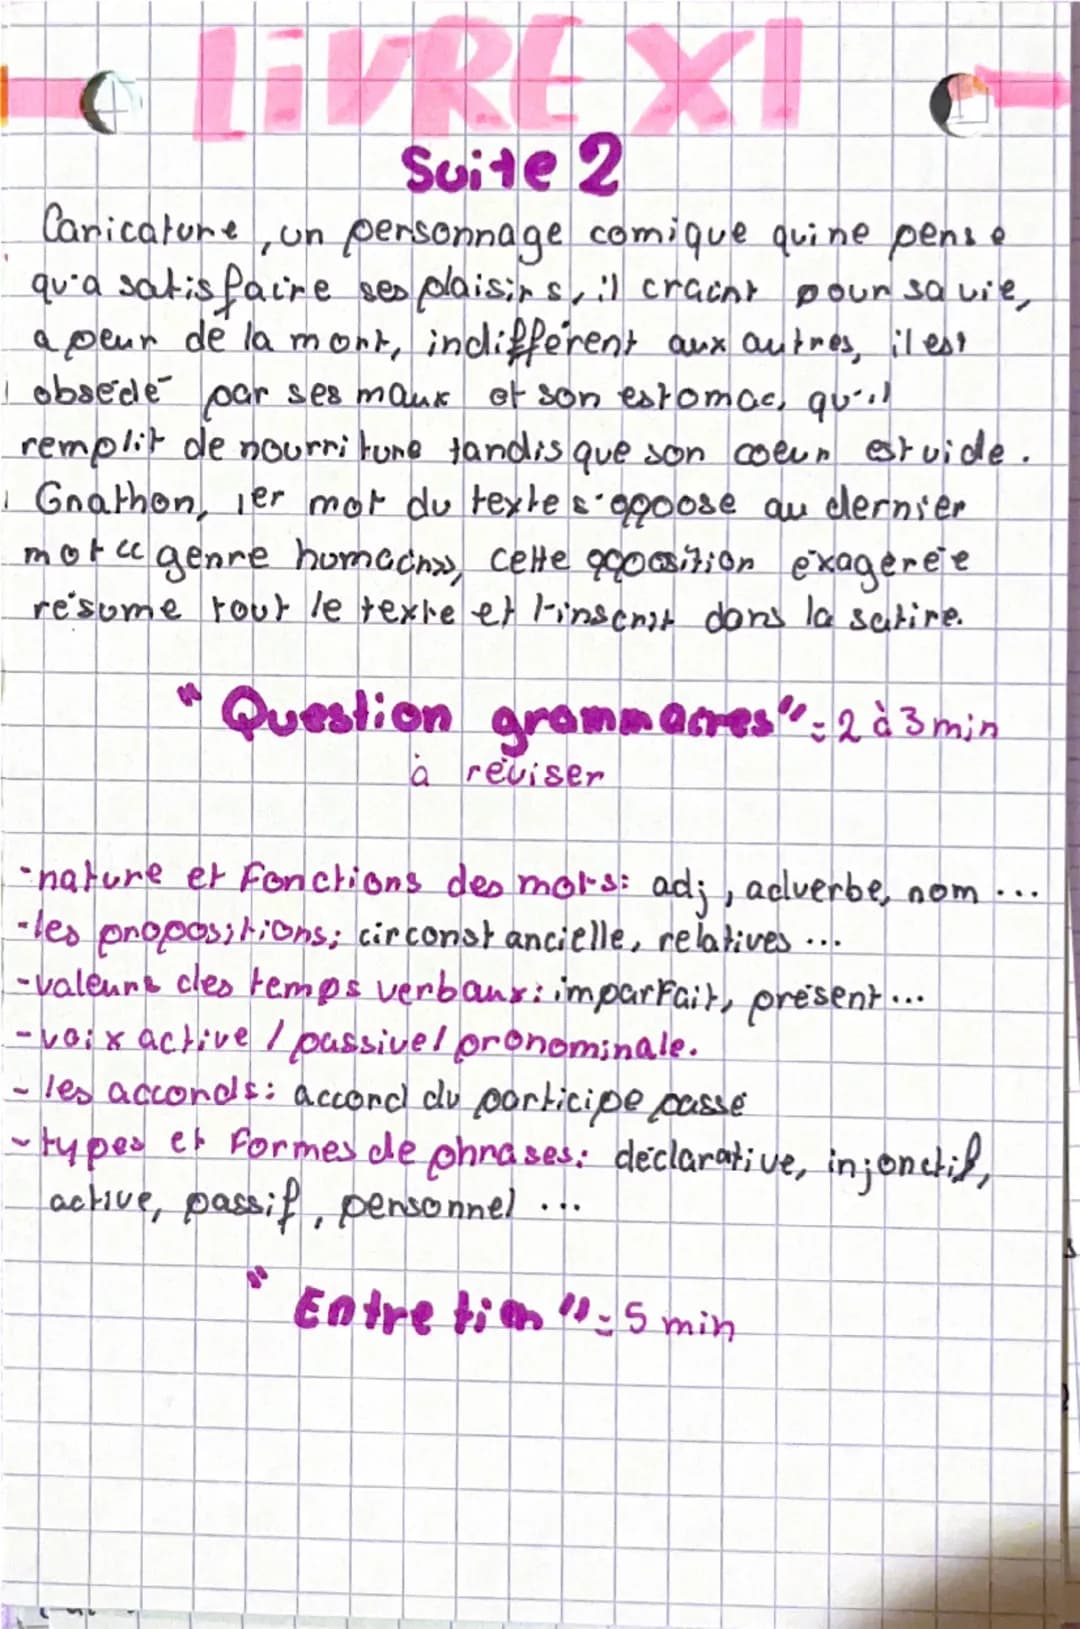 LiVRE XI
Suite 2
Caricature, un personnage comique qui ne pense
qu'a satisfaire ses plaisirs, il craint pour sa vie,
a peur de la mort, indifférent aux autres, il est
obsédé par ses maux et son estomac, qu'il
remplit de nourriture tandis que son coeur est vide.
Gnathon, 1er mot du texte s'oppose au dernier
mot « genre humain», cette opposition éxagérée
résume tout le texte et l'inscrit dans la satire.
" Question grammaires" = 2 à 3 min
à réviser
- nature et Fonctions des mots: adj, adverbe, nom ...
- les propositions; circonstancielle, relatives ...
- valeurs des temps verbaux: imparfait, présent ...
- voix active / passive / pronominale.
- les accords: accord du participe passé
- types et Formes de phrases: déclarative, injonctif,
active, passif, personnel ...
" Entretien " = 5 min